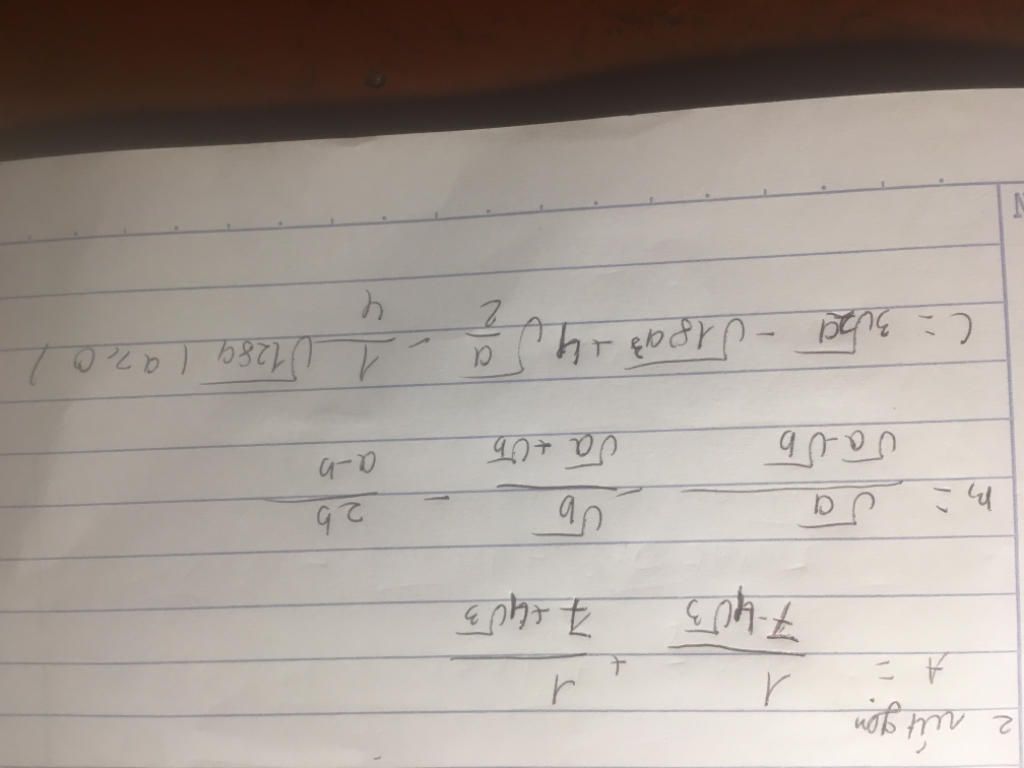 2 rút gọn
A = 1/(7-4√3) + 1/(7+4√3)
B = √a/(√a-√b) - √b/(√a+√b) - 2b/(a-b)
C = 3√2a - √18a³ + 4√(a/2) - 1/4 √128a (a≥0)